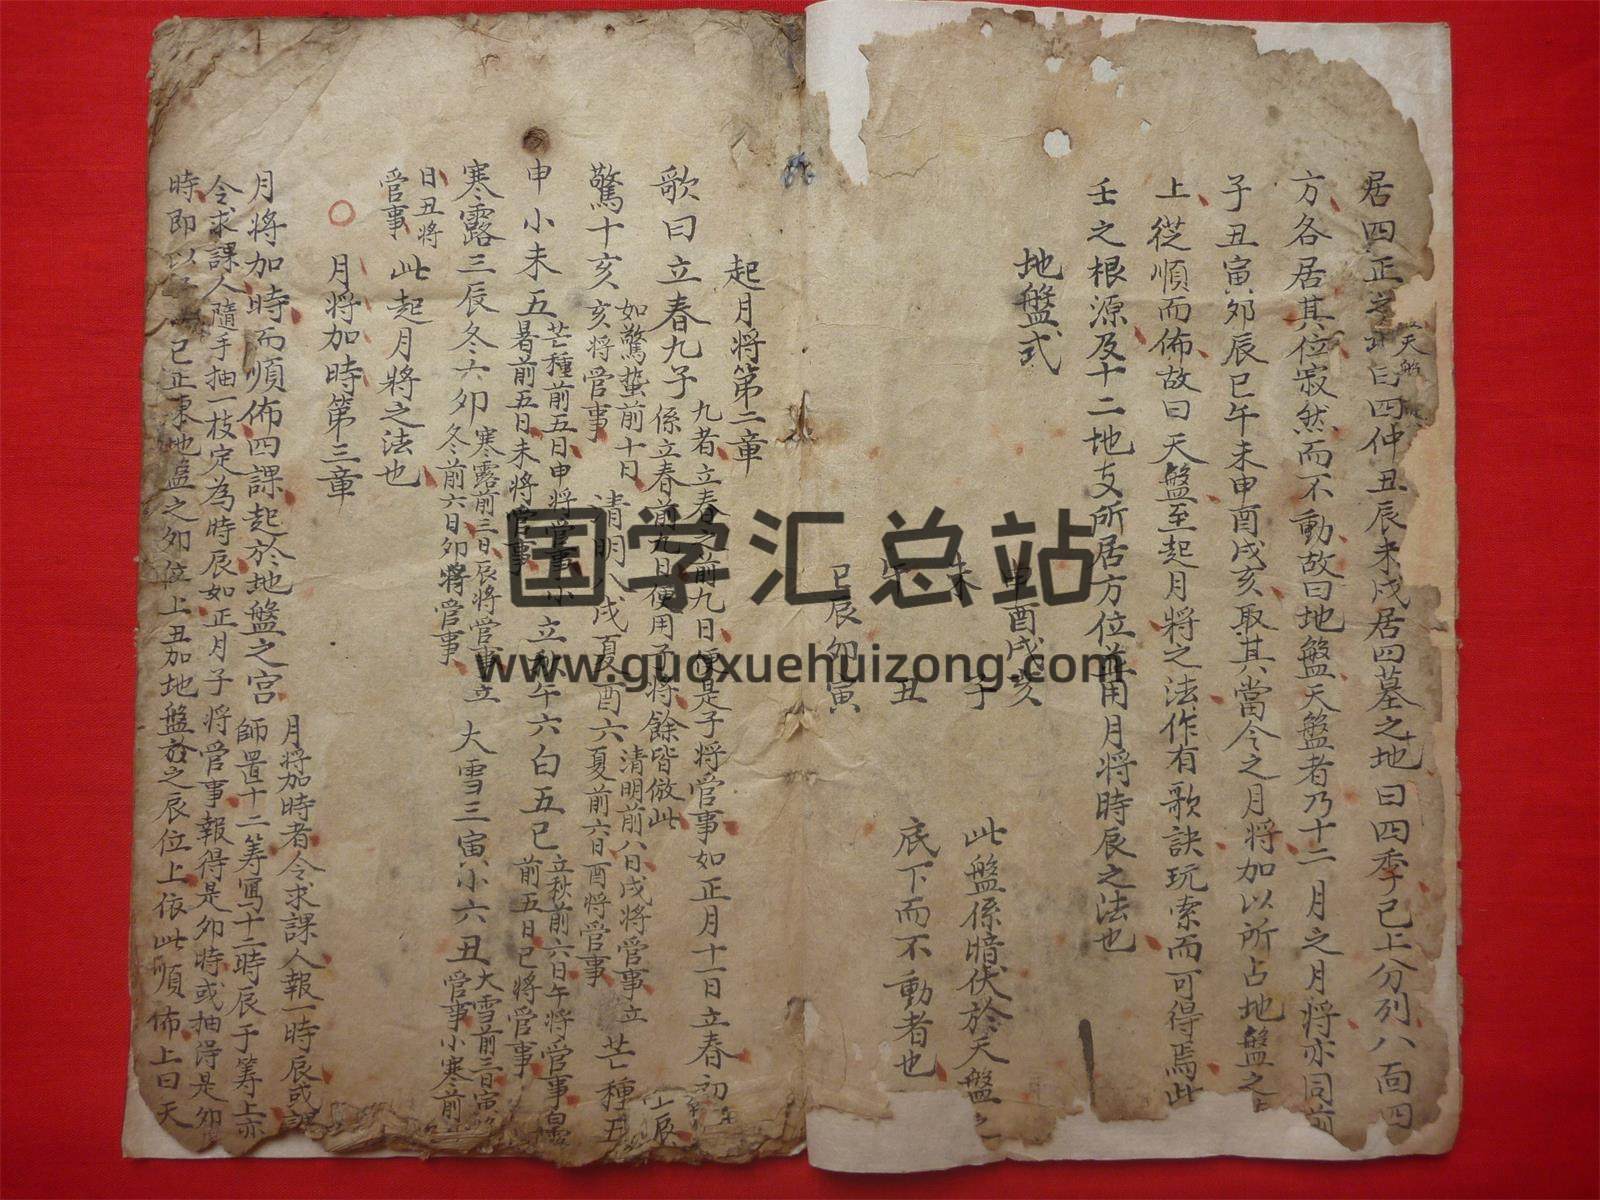 居四正之 曰四仲丑辰未戌居四墓之地曰四季已上分列八面四
天盤
方各居其位寂然而不動故曰地盤天盤者乃十二月之月將亦同前
子丑寅卯辰巳午未申酉戌亥取其當令之月將加以所占地盤之
上從順而佈故曰天盤至起月將之法作有歌訣玩索而可得焉此
壬之根源及十二地支所居方位並用月將時辰之法也
地盤式
申酉戌亥
未 子
午 丑
巳辰卯寅
此盤係暗伏於天盤之
底下而不動者也
起月将第二章
九者立春之前九日便是子將管事如正月十一日立春初
歌曰立春九子
係立春前九日便用子將餘皆倣此
如驚蟄前十日
驚十亥
亥將管事
清明八戌夏酉六
清明前八日戌將管事立
夏前六日酉將管事
芒種五
申小未五
芒種前五日申將管事小
暑前五日未將管事
立秋午六白五巳
立秋前六日午將管事白露
前五日巳將管事
寒露三辰冬六卯
寒露前三日辰將管事立
冬前六日卯將管事
大雪三寅小六丑
大雪前三日寅將
管事小寒前
日丑將
管事
此起月將之法也
月将加時第三章
月將加時而順佈四課起於地盤之宮
月將加時者令求課人報一時辰或課
師置十二籌寫十二時辰于籌上亦
令求課人隨手抽一枝定為時辰如正月子將管事報得是卯時或抽得是卯
時即以子 已正東地盤之卯位上丑加地盤 之辰位上依此順佈上曰天
国学汇总站
www.guoxuehuizong.com